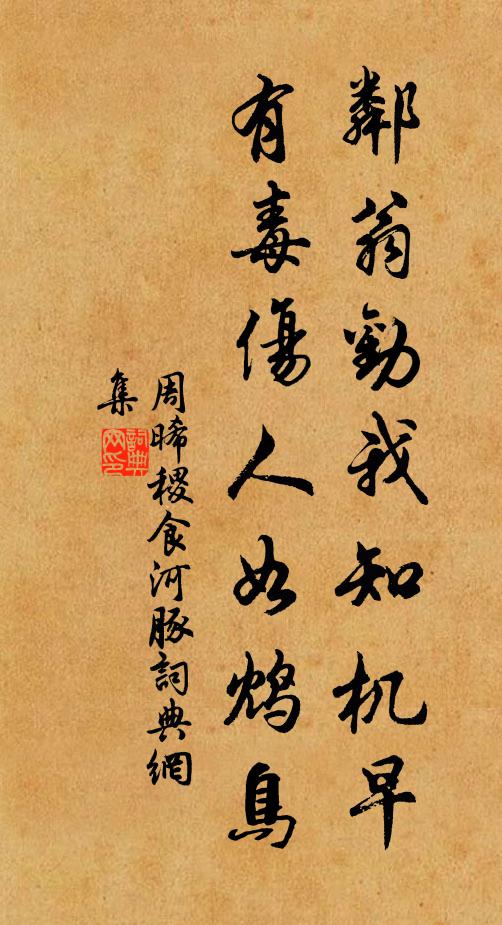 鄰翁勸我知机早
有毒傷人如鴆鳥
周晞稷食河豚詞典網
集
詞典
网印